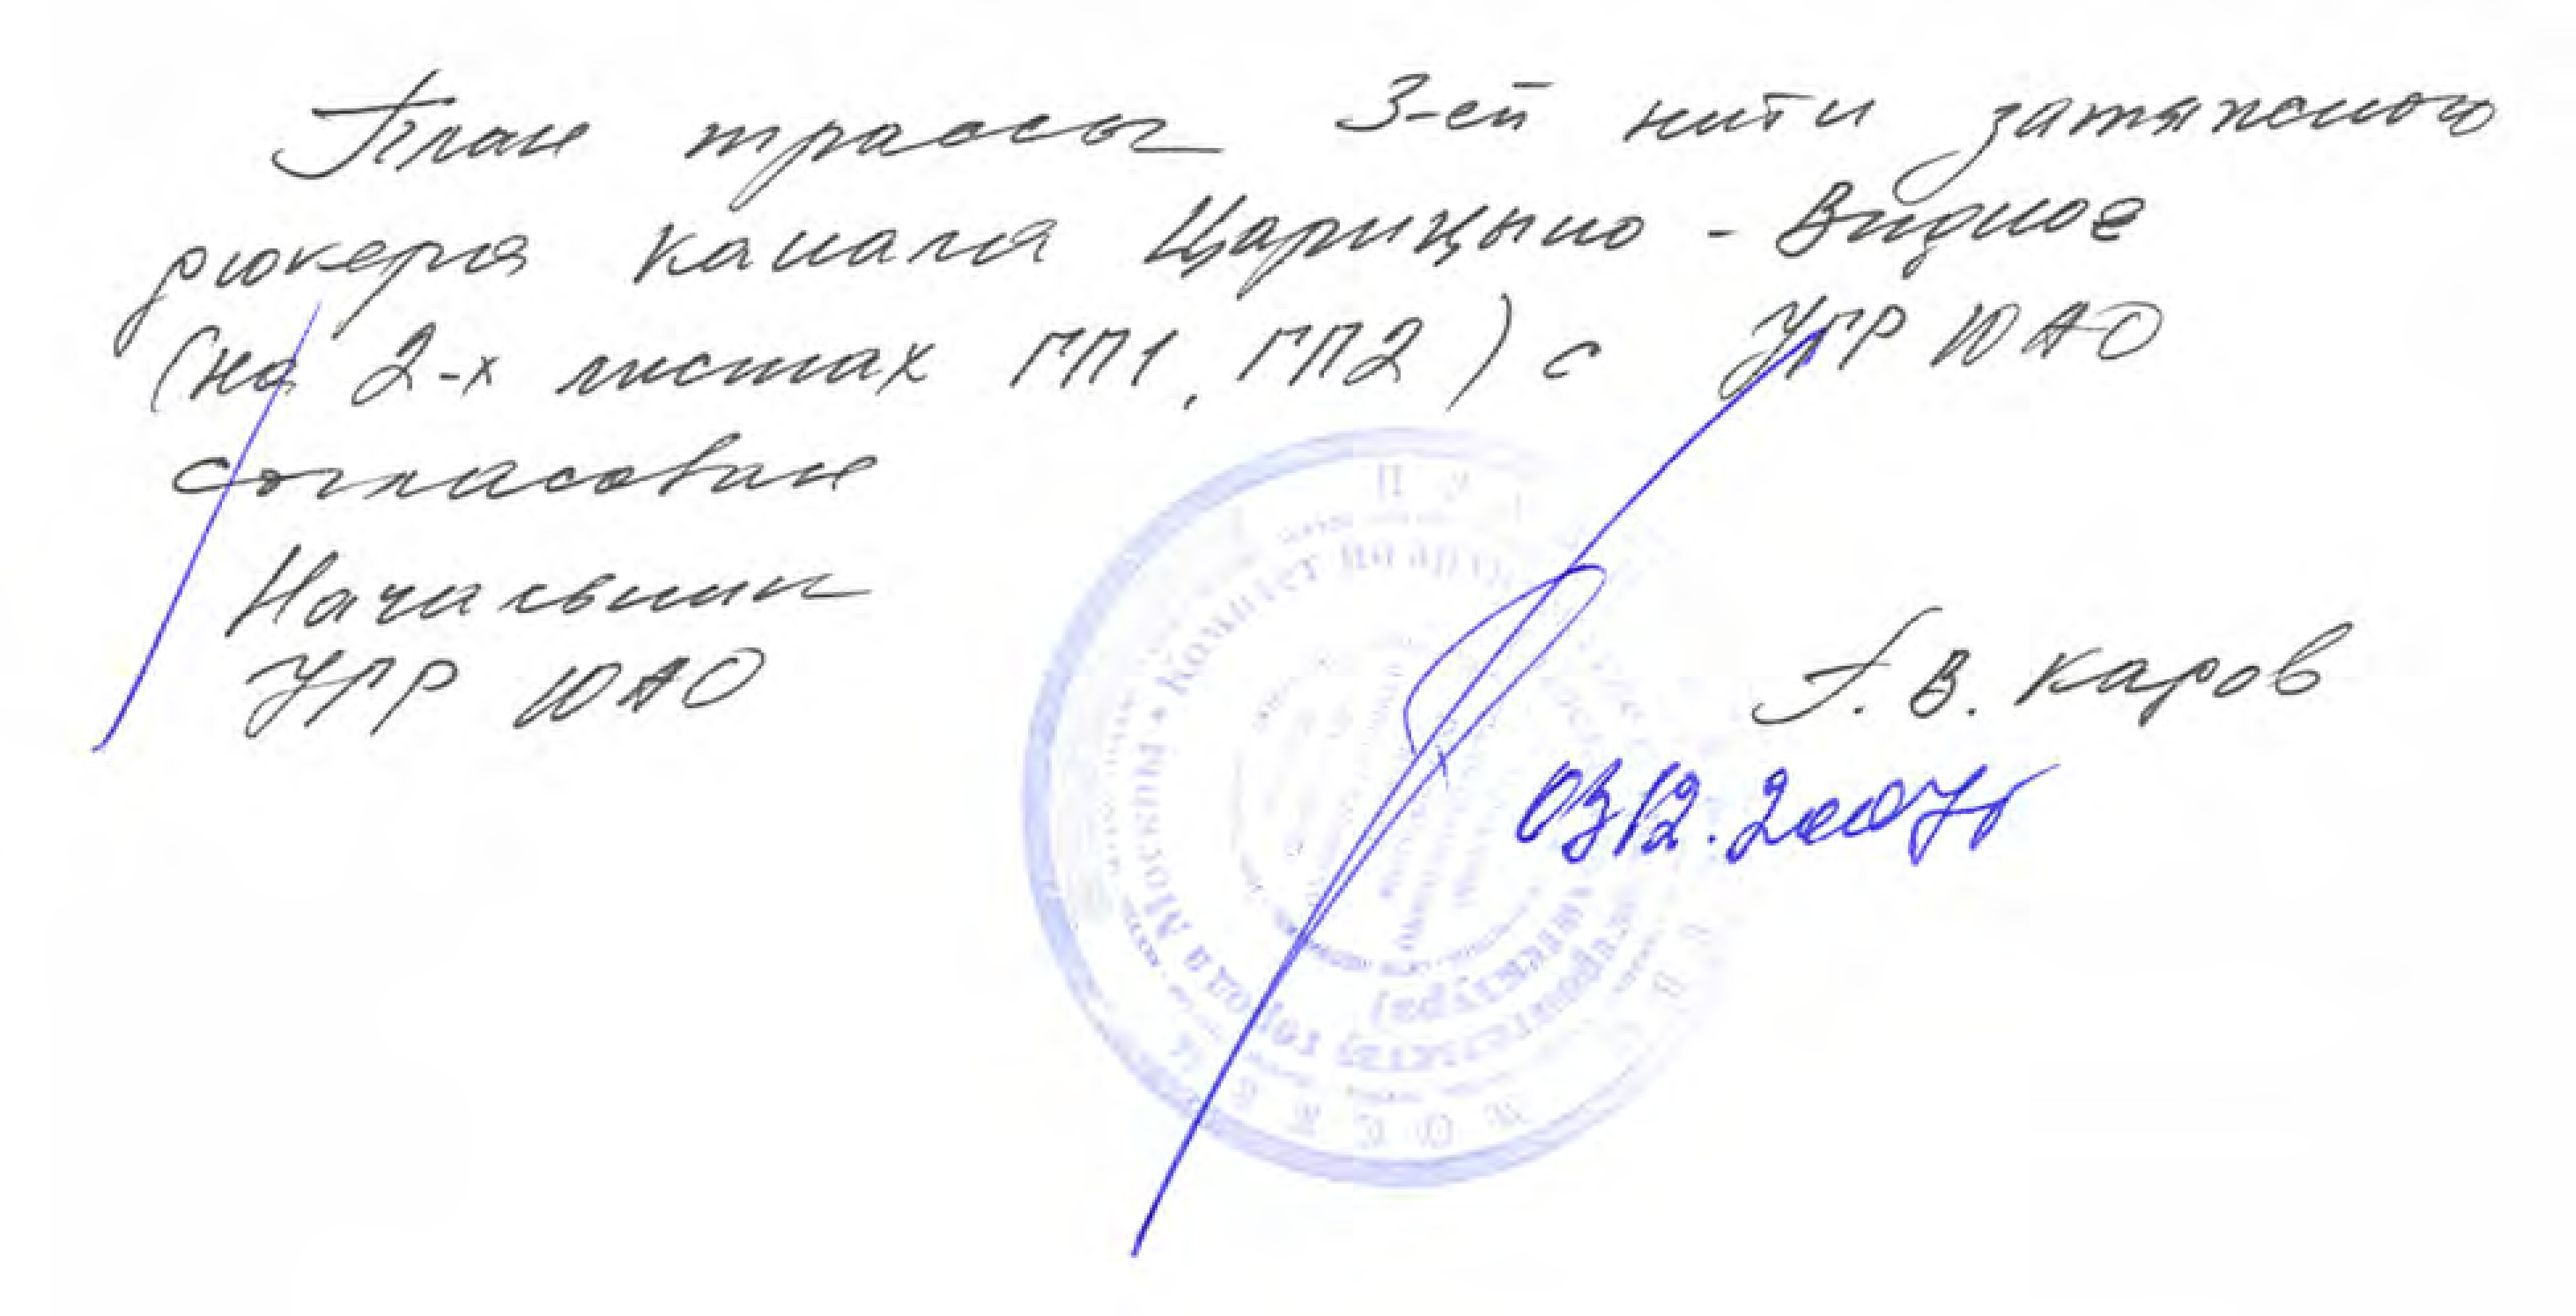 План трассы 3-ей нити затяжного
дюкера канала Царицыно - Видное
(на 2-х листах ГП1, ГП2) с УГР ЮАО
согласован
Начальник
УГР ЮАО
Г. В. Каров
03.12.2007г
Комитет по
города Москвы
МОСКВА